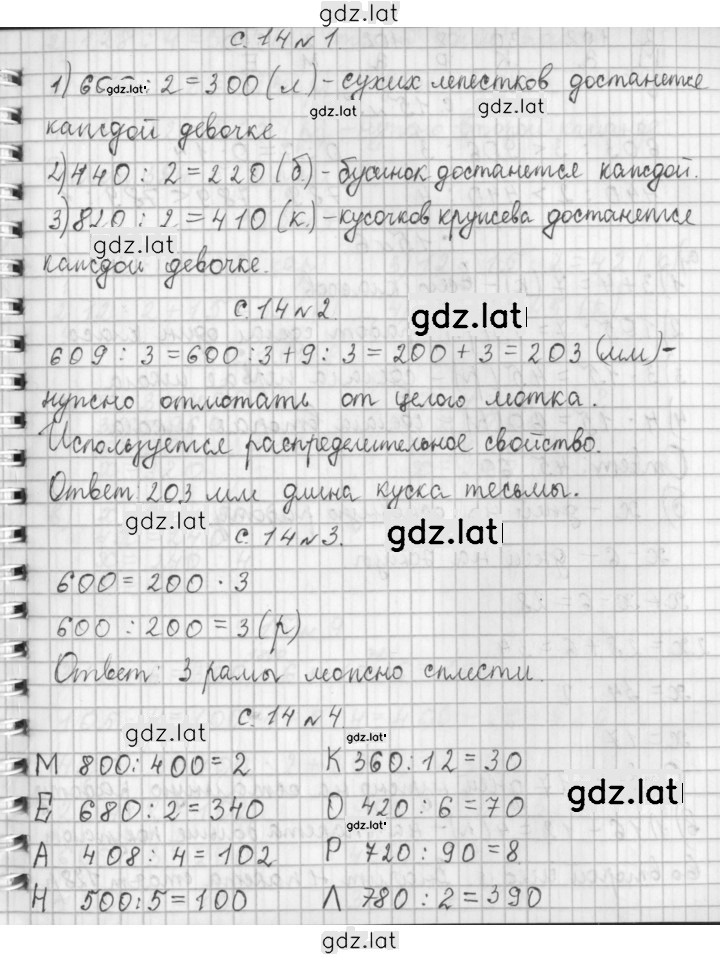 gdz.lat
с. 14 № 1.
1) 600 : 2 = 300 (л) - сухих лепестков достанется
gdz.lat
gdz.lat
каждой девочке
2) 440 : 2 = 220 (б) - бусинок достанется каждой.
3) 820 : 2 = 410 (к) - кусочков кружева достанется
gdz.lat
каждой девочке.
с. 14 № 2.
gdz.lat
609 : 3 = 600 : 3 + 9 : 3 = 200 + 3 = 203 (мм) -
нужно отмотать от целого мотка.
Используется распределительное свойство.
Ответ: 203 мм длина куска тесьмы.
gdz.lat
с. 14 № 3.
gdz.lat
600 = 200 · 3
600 : 200 = 3 (р)
Ответ: 3 рамы можно сплести.
с. 14 № 4
gdz.lat
gdz.lat
М 800 : 400 = 2 К 360 : 12 = 30
Е 680 : 2 = 340 О 420 : 6 = 70
gdz.lat
gdz.lat
А 408 : 4 = 102 Р 720 : 90 = 8
Н 500 : 5 = 100 Л 780 : 2 = 390
gdz.lat